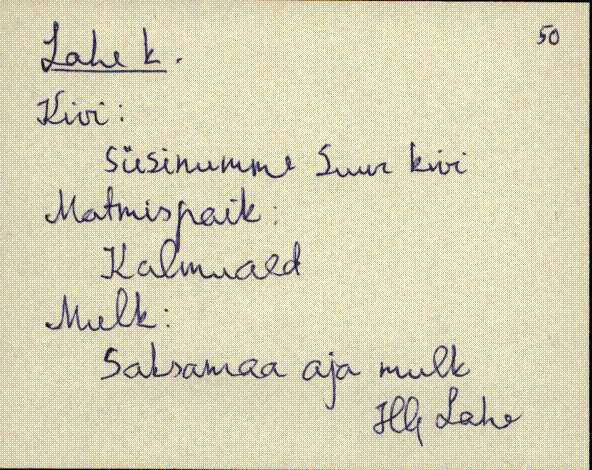 50
Lahe k.
Kivi:
Süsinumme Suur kivi
Matmispaik:
Kalmuaed
Mulk:
Saksamaa aja mulk
Lahe